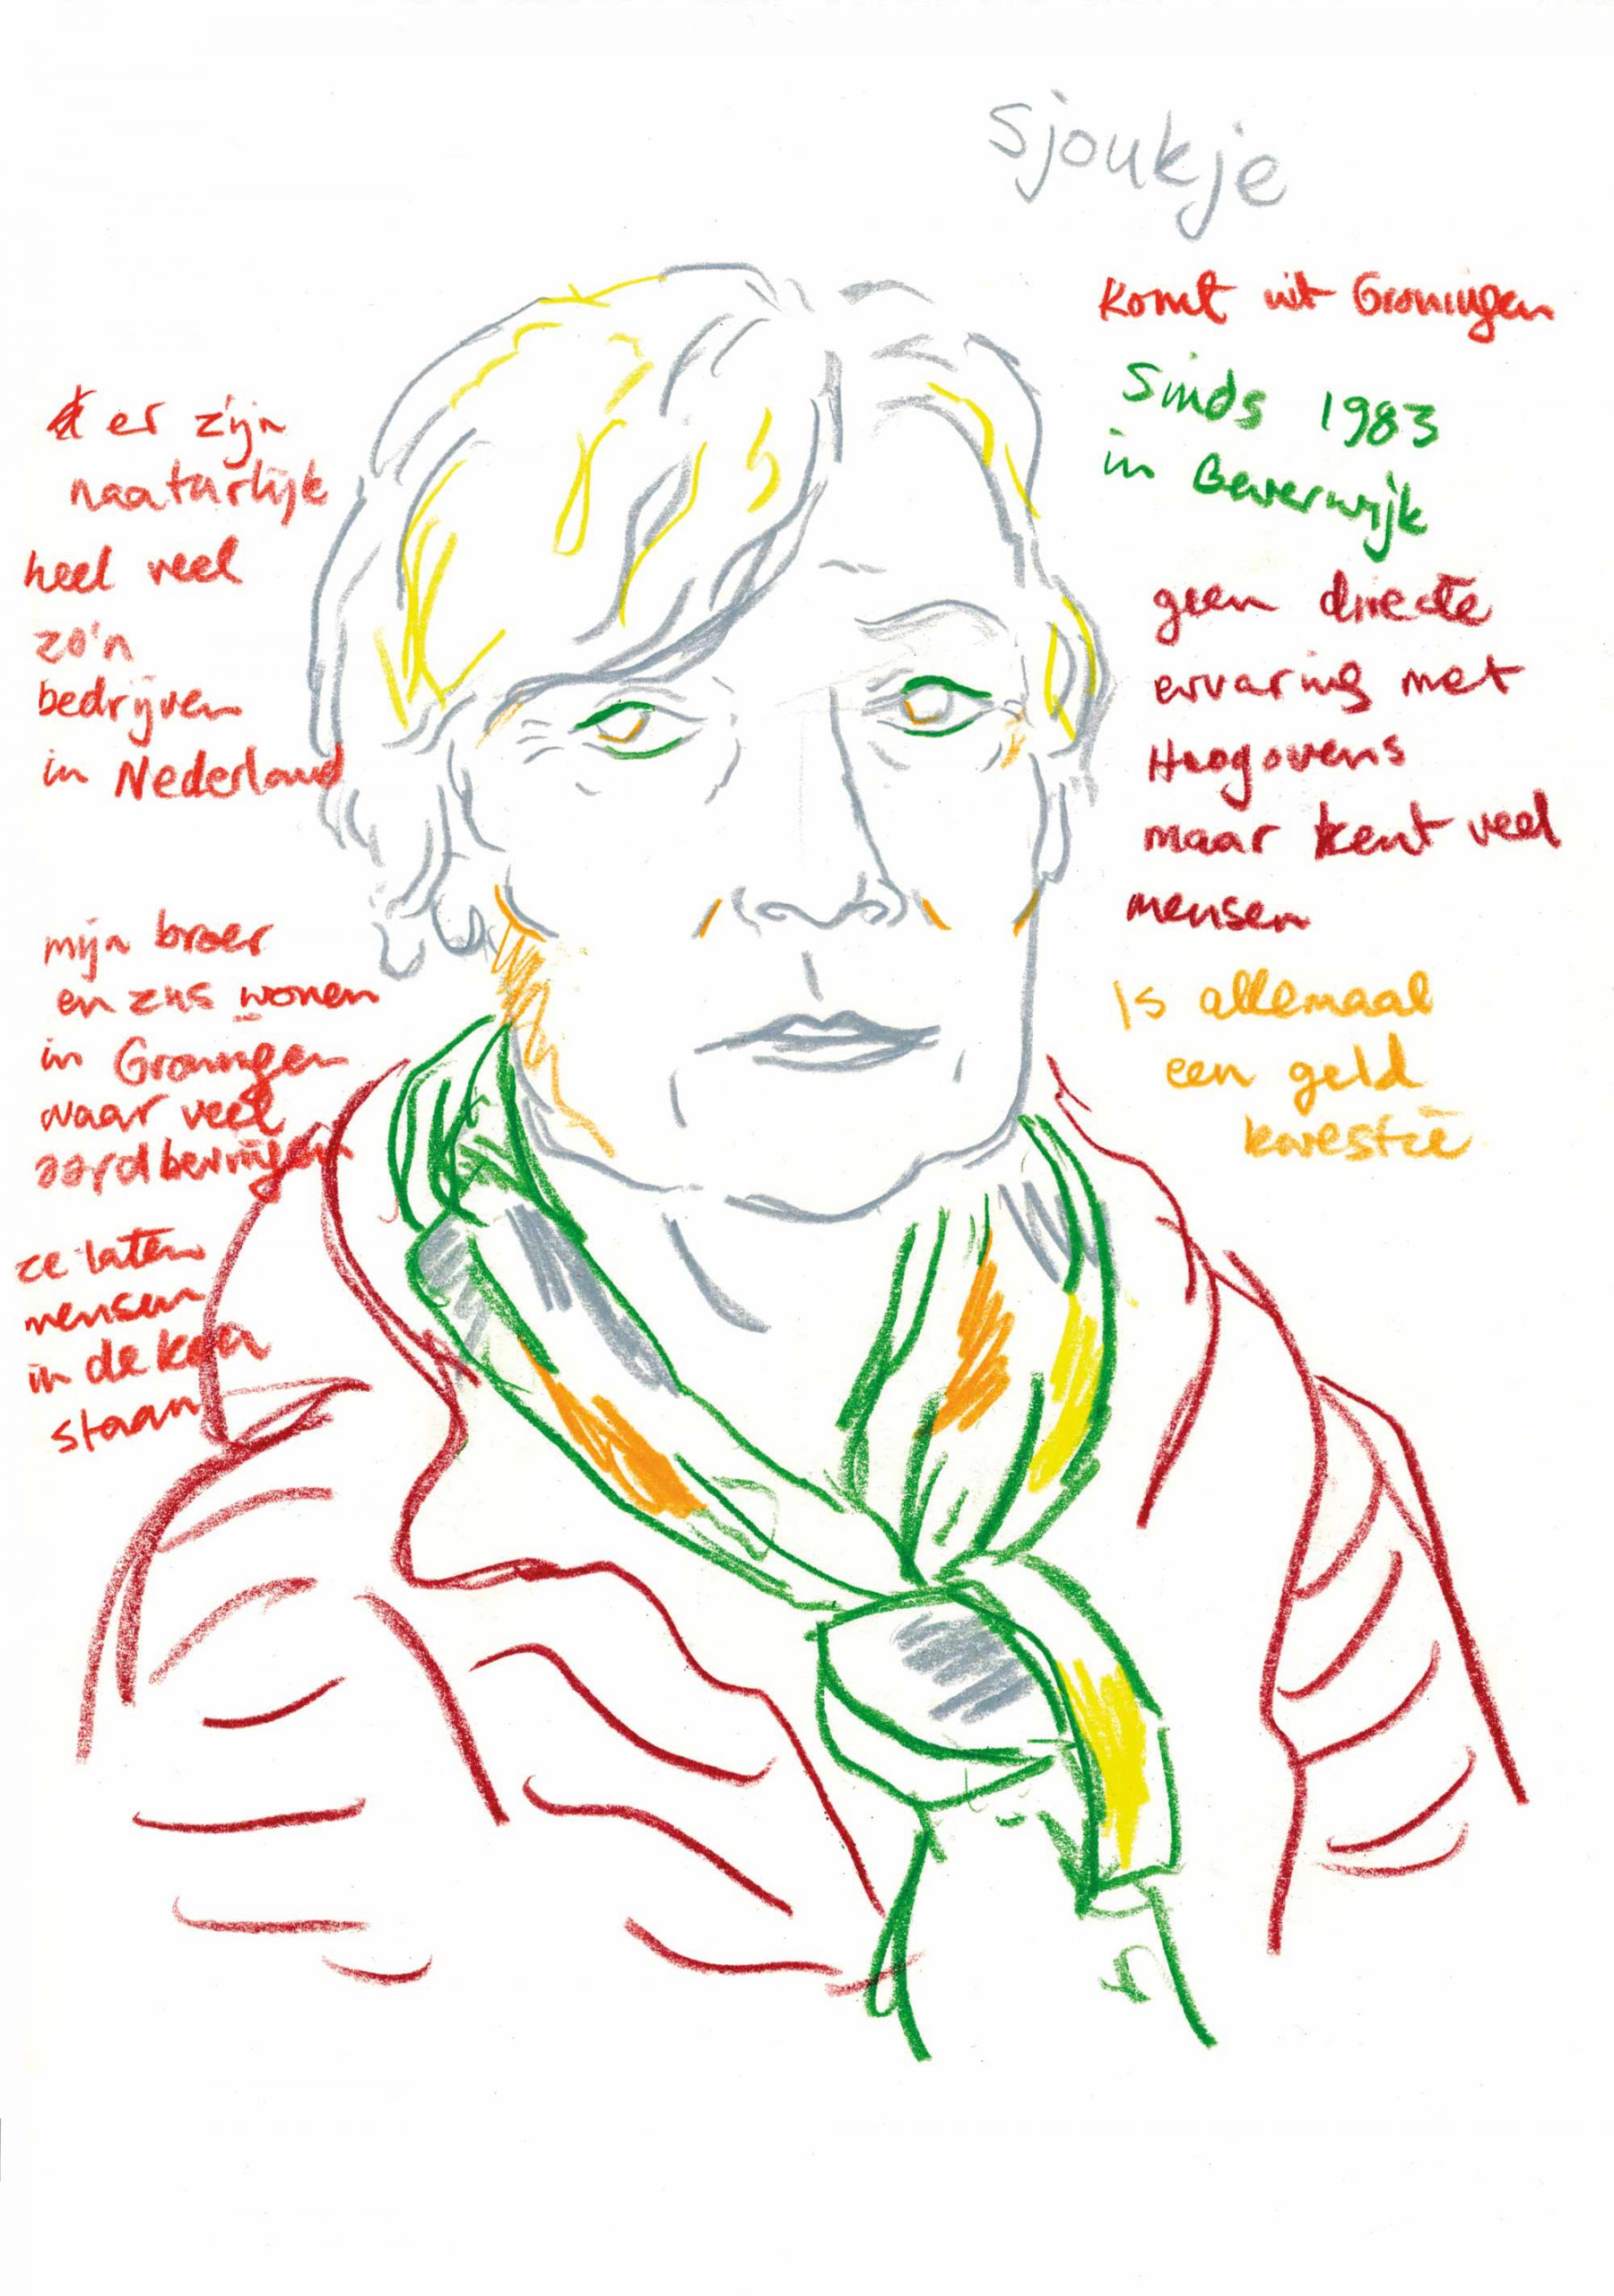 Sjoukje
komt uit Groningen
Sinds 1983
in Beverwijk
geen directe
ervaring met
Hoogovens
maar kent veel
mensen
Is allemaal
een geld
kwestie
er zijn
naaturlijk
heel veel
zo'n
bedrijven
in Nederland
mijn broer
en zus wonen
in Groningen
waar veel
aardbevingen
ze laten
mensen
in de kou
staan